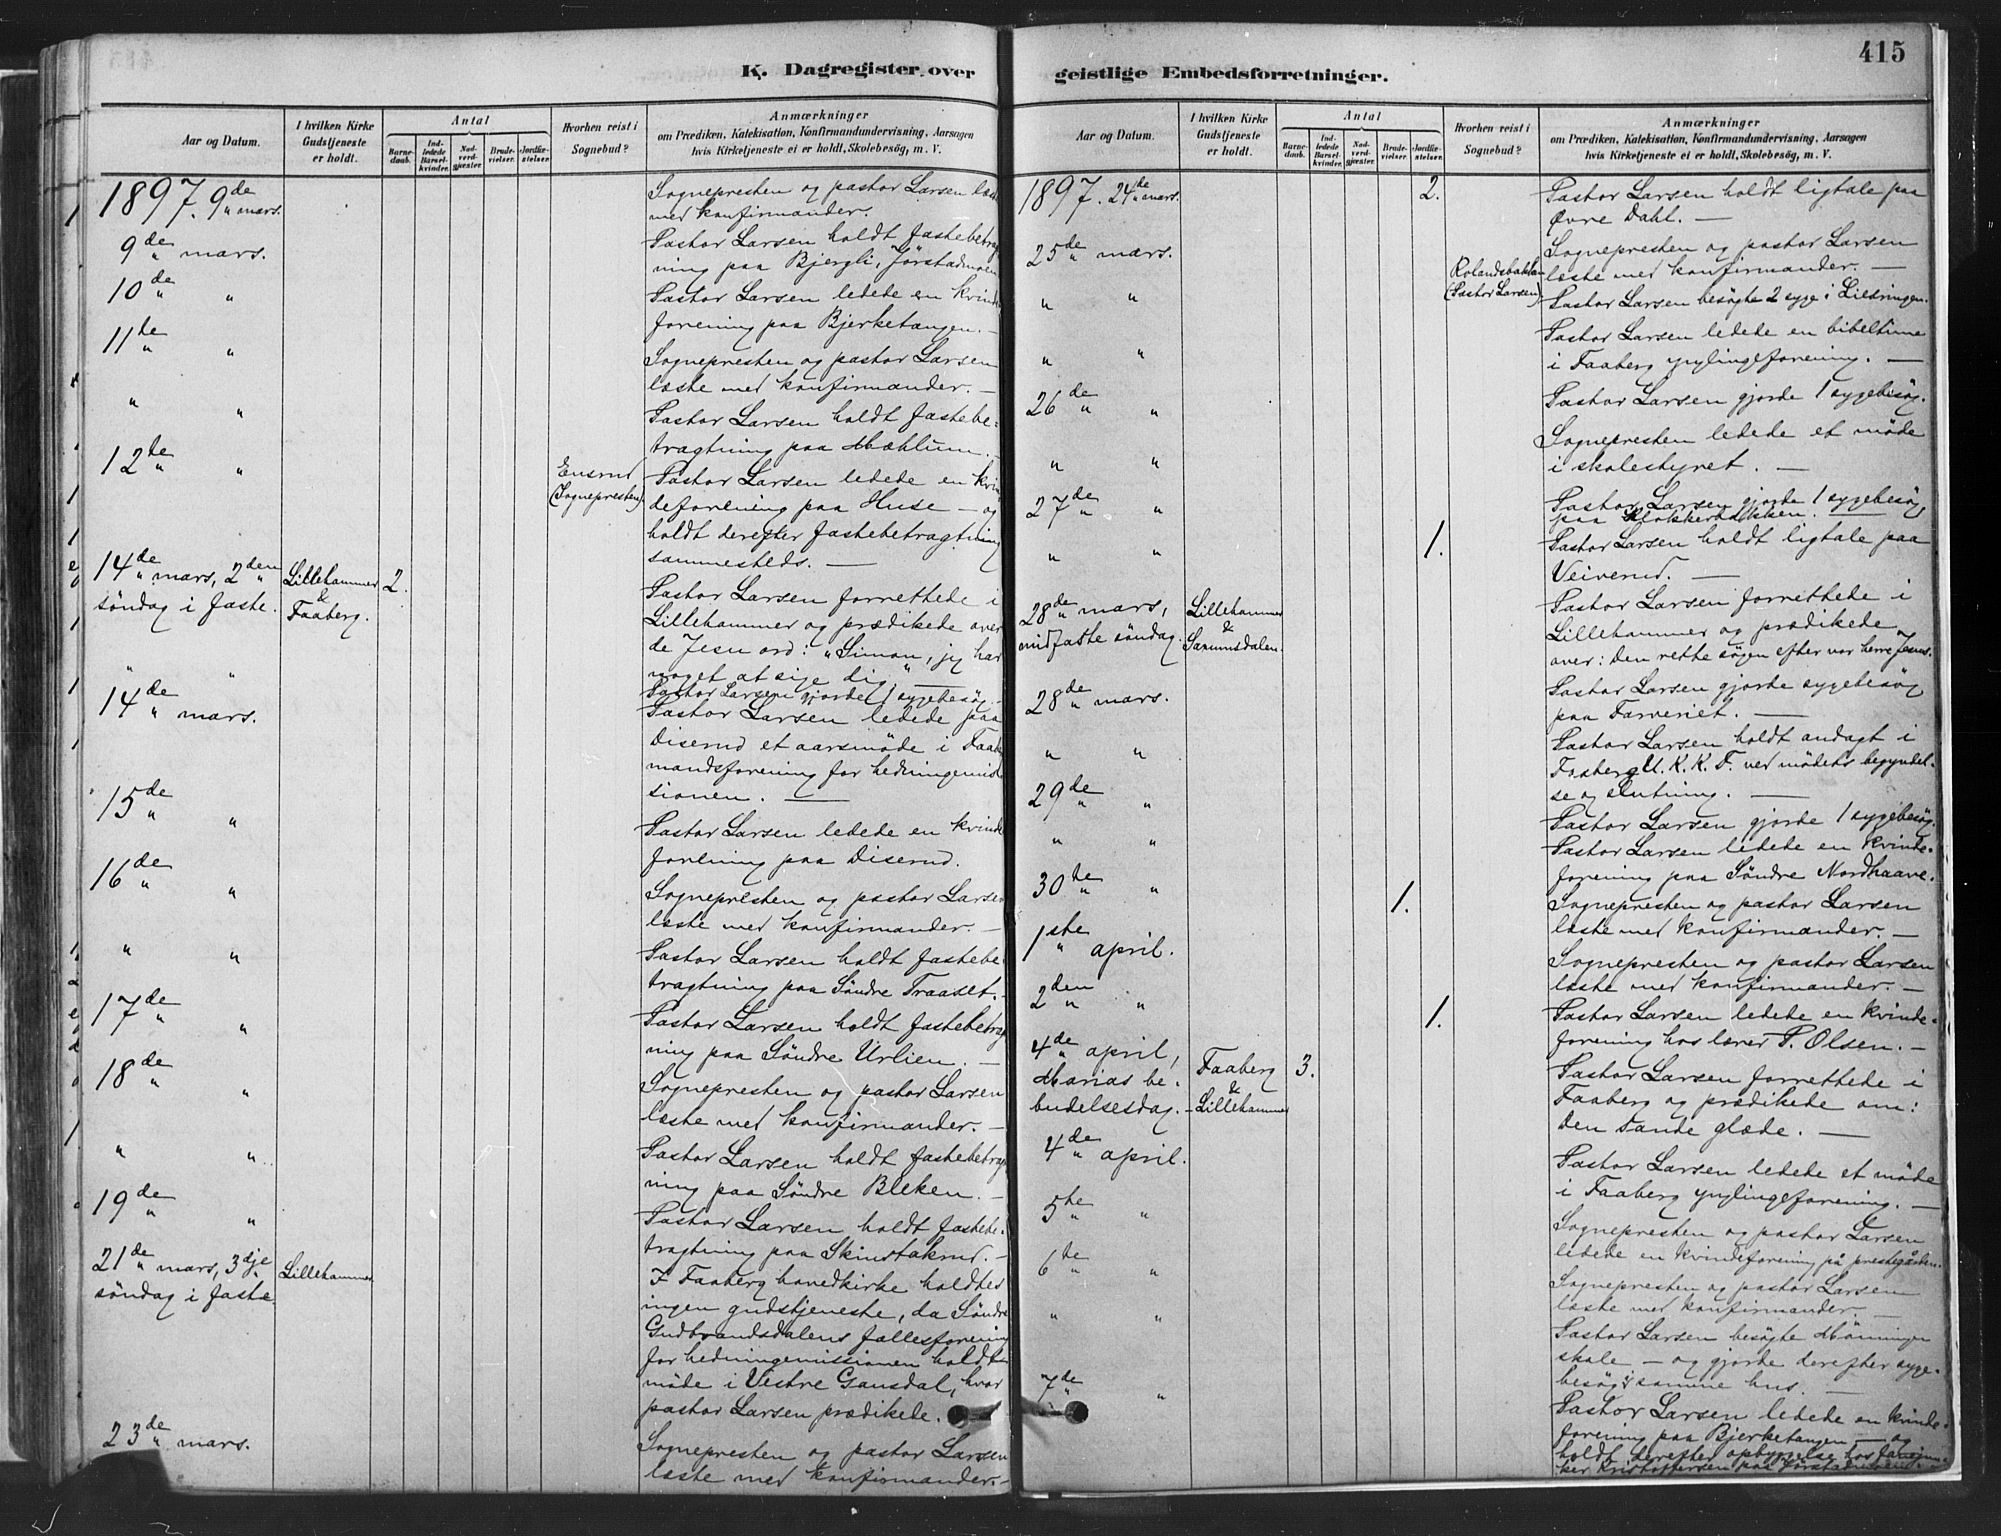 415
K. Dagregister over geistlige Embedsforretninger.
Aar og Datum.
I hvilken Kirke Gudstjeneste er holdt.
Antal
Barnedaab.
Indledede Barselkvinder.
Nadverdgjæster.
Brudevielser.
Jordfæstelser.
Hvorhen reist i Sognebud?
Anmærkninger
om Prædiken, Katekisation, Konfirmandundervisning, Aarsagen
hvis Kirketjeneste ei er holdt, Skolebesög, m. V.
1897. 9de mars.
Sognepresten og pastor Larsen læste
med konfirmander.
9de mars.
Pastor Larsen holdt fastebetrag
ning paa Bjergli, Jörstadmoen
10de "
Pastor Larsen ledede en kvinde
forening paa Bjerketangen. —
11te "
Sognepresten og pastor Larsen
læste med konfirmander. —
" "
Pastor Larsen holdt fastebe=
tragtning paa Mæhlum. —
12te "
Ensrud
(Sognepresten)
Pastor Larsen ledede en kvin
deforening paa Huse — og
holdt derefter fastebetragtning
sammesteds. —
14de mars, 2den
söndag i faste.
Lillehammer
&
Faaberg.
2.
Pastor Larsen forrettede i
Lillehammer og prædikede over
de Jesu ord: „Simon, jeg har
noget at sige dig." —
" "
Pastor Larsen gjorde 1 sygebesög. —
14de mars.
Pastor Larsen ledede paa
Diserud et aarsmöde i Faab
mandsforening for hedningemis
sionen. —
15de "
Pastor Larsen ledede en kvinde
forening paa Diserud.
16de "
Sognepresten og pastor Larsen
læste med konfirmander. —
" "
Pastor Larsen holdt fastebe
tragtning paa Söndre Traaset. —
17de "
Pastor Larsen holdt fastebetrag
ning paa Söndre Urlien. —
18de "
Sognepresten og pastor Larsen
læste med konfirmander. —
" "
Pastor Larsen holdt fastebetrag
ning paa Söndre Bleken. —
19de "
Pastor Larsen holdt fastebe=
tragtning paa Skindstakrud. —
21de mars, 3dje
söndag i faste.
Lillehammer
I Faaberg hovedkirke holdtes
ingen gudstjeneste, da Söndre
Gudbrandsdalens fællesforening
for hedningemissionen holdt
möde i Vestre Gausdal, hvor
pastor Larsen prædikede.
23de mars.
Sognepresten og pastor Larsen
læste med konfirmander. —
Aar og Datum.
I hvilken Kirke Gudstjeneste er holdt.
Antal
Barnedaab.
Indledede Barselkvinder.
Nadverdgjæster.
Brudevielser.
Jordfæstelser.
Hvorhen reist i Sognebud?
Anmærkninger
om Prædiken, Katekisation, Konfirmandundervisning, Aarsagen
hvis Kirketjeneste ei er holdt, Skolebesög, m. V.
1897. 24de mars.
2.
Pastor Larsen holdt ligtale paa
Øvre Dahl. —
25de mars.
Sognepresten og pastor Larsen
læste med konfirmander. —
" "
Rolandsbakken
(Pastor Larsen)
Pastor Larsen besögte 2 syge i
" "
Pastor Larsen ledede en bibeltime
i Faaberg ynglingeforening. —
26de "
Pastor Larsen gjorde 1 sygebesög.
" "
Sognepresten ledede et möde
i skolestyret. —
27de "
Pastor Larsen gjorde 1 sygebesög
paa Klokkerbakken. —
" "
1.
Pastor Larsen holdt ligtale paa
Veiverud. —
28de mars,
midfaste söndag.
Lillehammer
&
Saxumsdalen.
Pastor Larsen forrettede i
Lillehammer og prædikede
over: Den rette sögen efter vor herre Jesus.
28de mars.
Pastor Larsen gjorde sygebesög
paa Farveriet. —
" "
Pastor Larsen holdt andagt i
Faaberg U. K. K. F. ved mödets begyndel=
se og slutning. —
29de "
Pastor Larsen gjorde 1 sygebesög.
" "
Pastor Larsen ledede en kvinde=
forening paa Söndre Nordhaave.
30te "
1.
Sognepresten og pastor Larsen
læste med konfirmander. —
1ste april.
Sognepresten og pastor Larsen
læste med konfirmander. —
2den "
1.
Pastor Larsen ledede en kvinde=
forening hos lærer P. Olsen. —
4de april,
Marias be=
budelsesdag.
Faaberg
&
Lillehammer
3.
Pastor Larsen forrettede i
Faaberg og prædikede om:
Den sande glæde. —
4de april.
Pastor Larsen ledede et möde
i Faaberg ynglingeforening. —
5te "
Sognepresten og pastor Larsen
ledede en kvindeforening på prestegården.
6te "
Sognepresten og pastor Larsen
læste med konfirmander. —
" "
Pastor Larsen besögte
skole — og gjorde derefter syge=
besög i samme hus. —
7de "
Pastor Larsen ledede en kvinde=
forening paa Bjerketangen — og
holdt derefter opbyggelse hos
Kristoffersen paa Jörstadmoen.